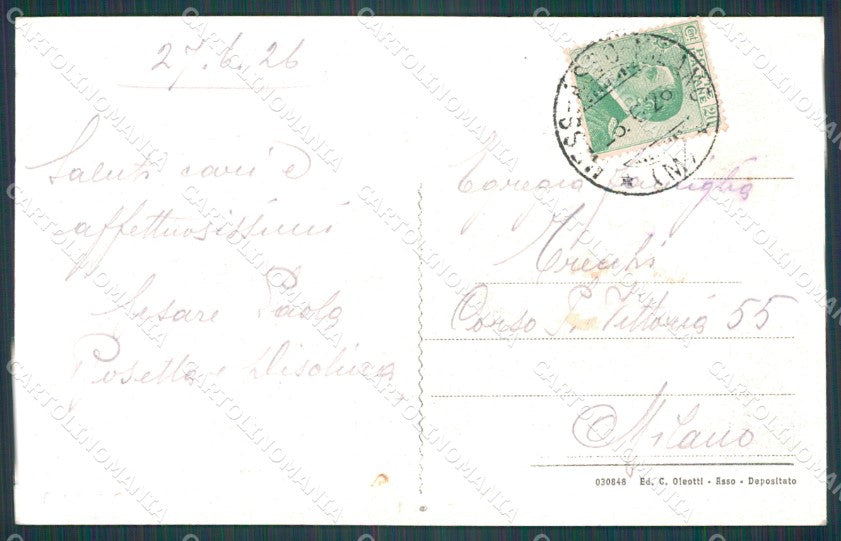 27.6.26
Saluti cari e
affettuosissimi
Cesare Paola
Egregia famiglia
Corso P. Vittoria 55
Milano
030848 Ed. C. Oleotti - Asso - Depositato
CARTOLINOMANIA